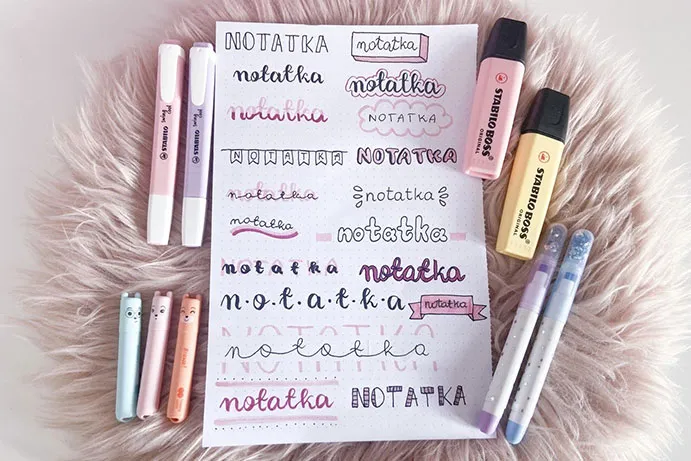 NOTATKA
notatka
notatka
notatka
notatka
NOTATKA
NOTATKA
NOTATKA
notatka
notatka
notatka
notatka
notatka
notatka
n·o·t·a·t·k·a
notatka
NOTATKA
notatka
notatka
NOTATKA
STABILO swing cool
STABILO swing cool
STABILO BOSS
ORIGINAL
STABILO BOSS
ORIGINAL